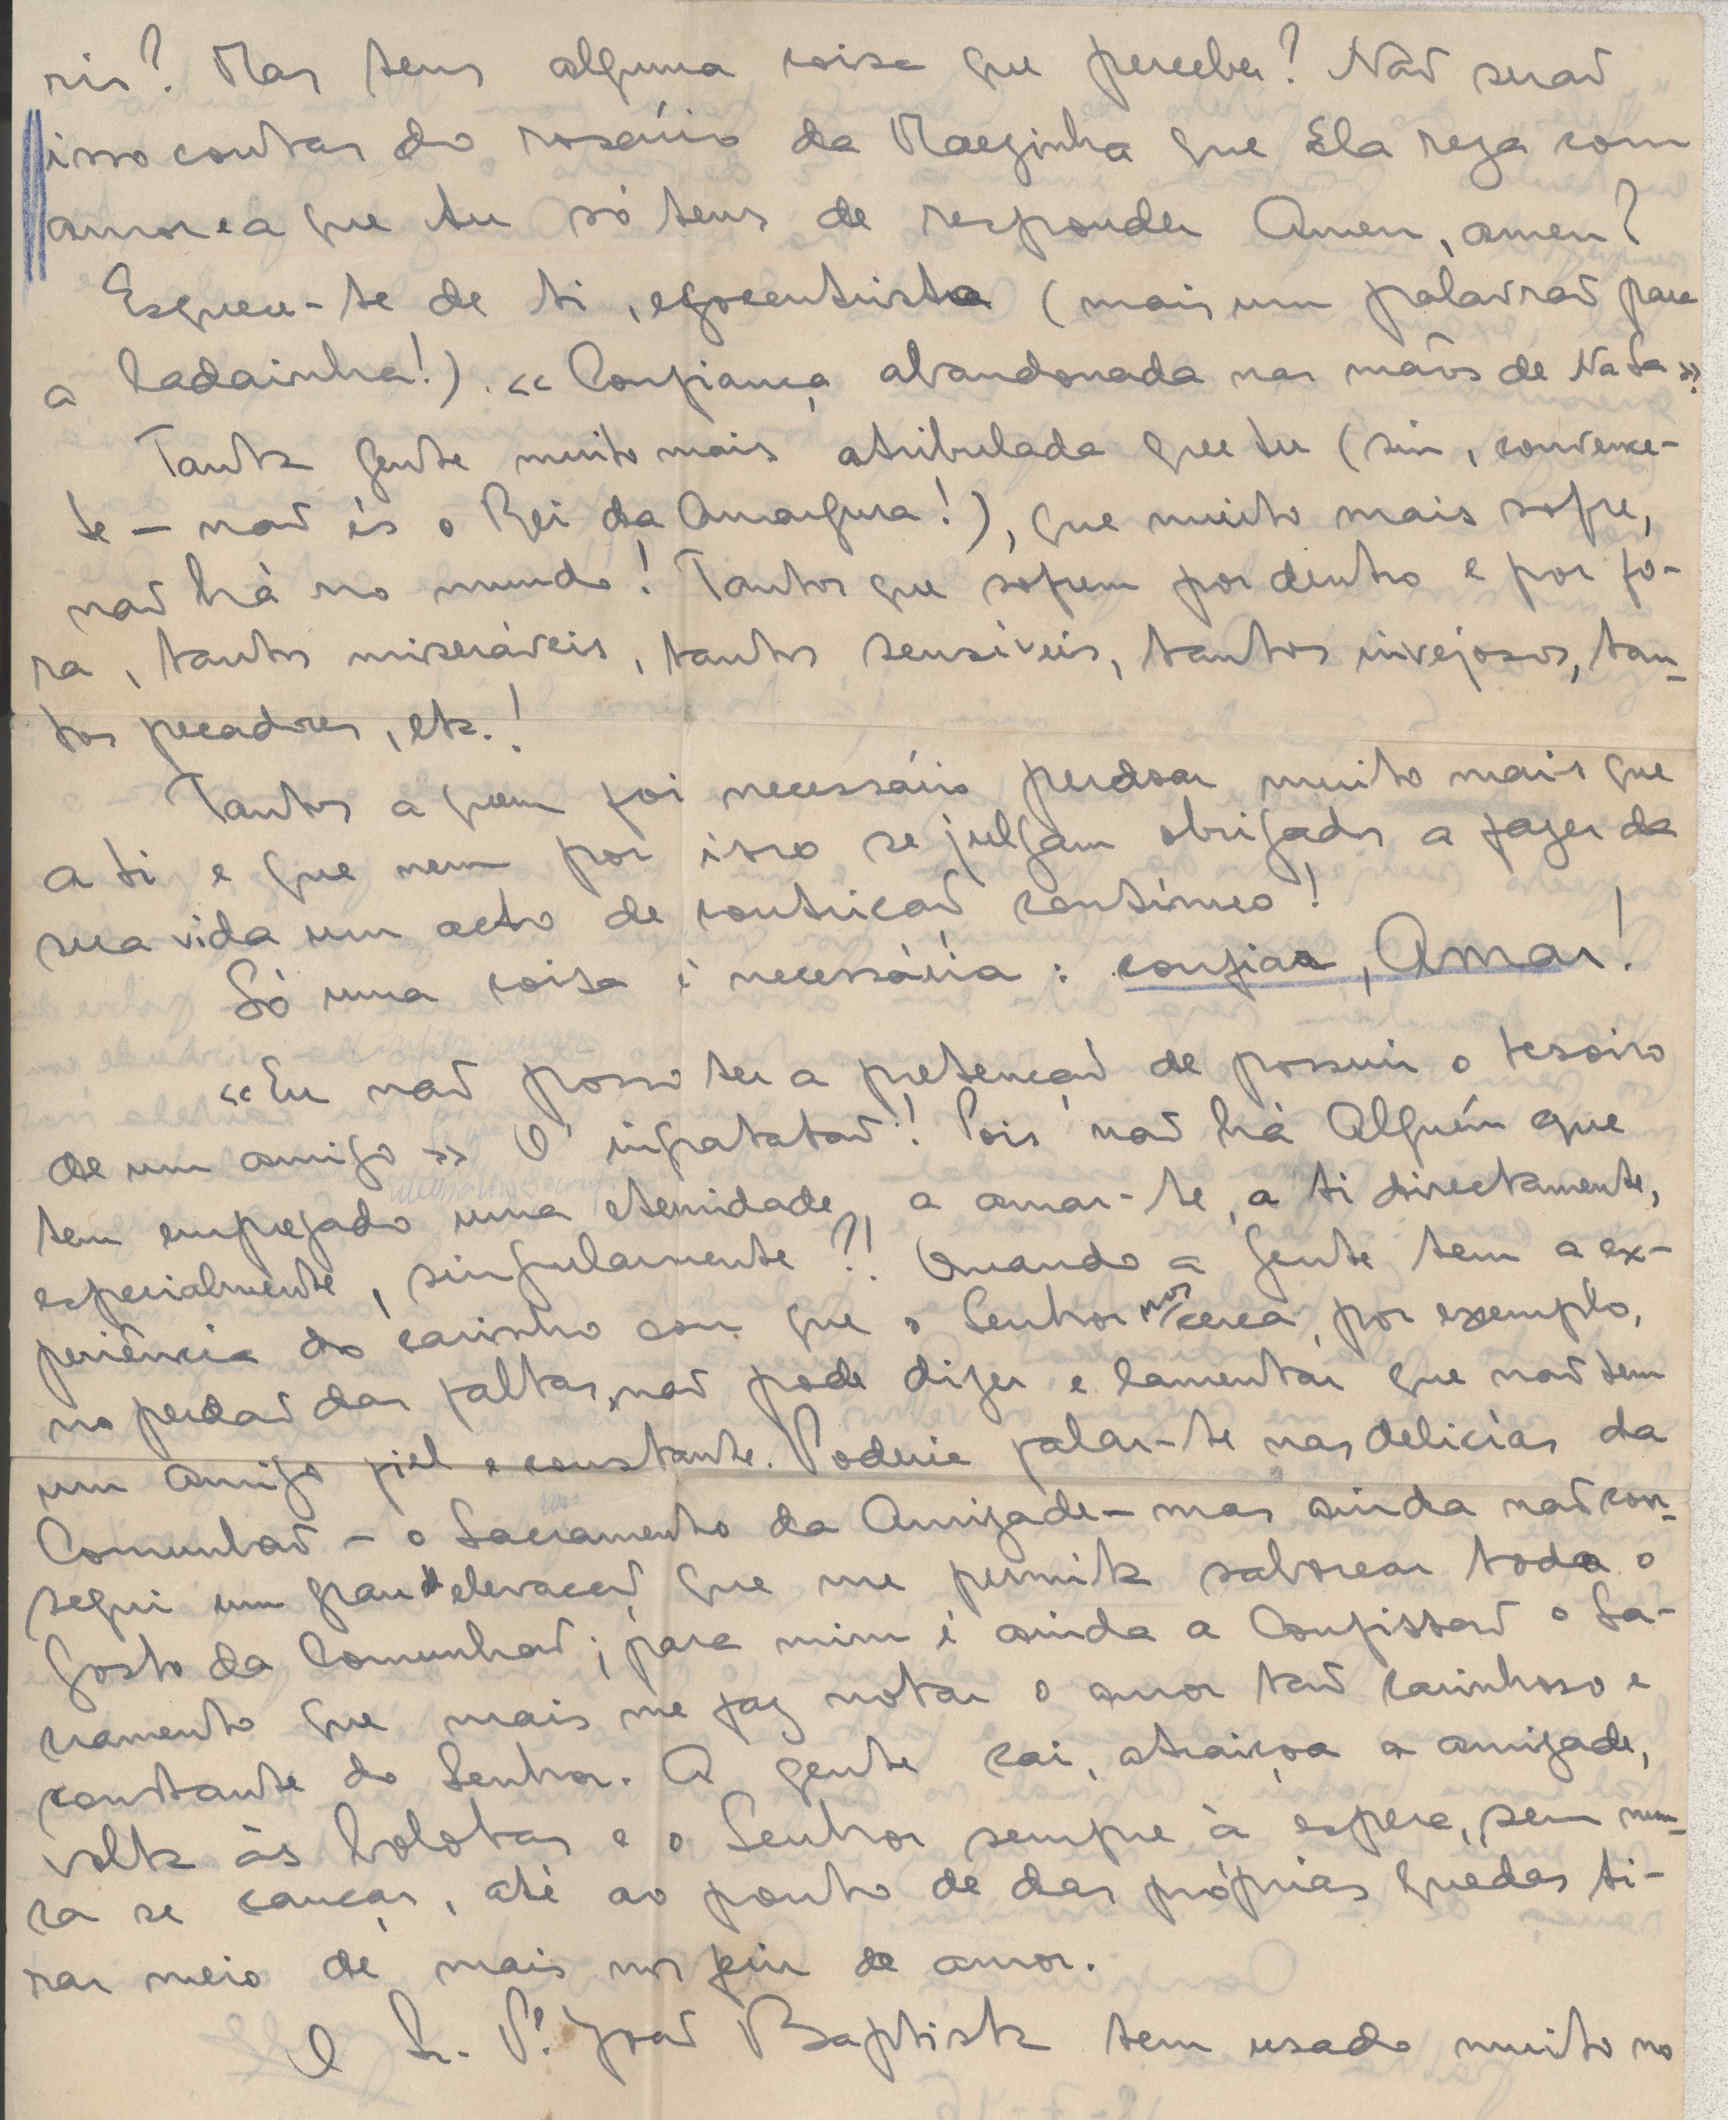 rir? Mas tens alguma coisa que perceber? Não serão
isso contas do rosário da Mãezinha que Ela reza com
amor e a que tu só tens de responder Amen, amen?
Esquece-te de ti, egocentrista (mais um palavrão para
a ladainha!). «Confiança abandonada nas mãos de Na Sa»!
Tanta gente muito mais atribulada que tu (sim, convence-
te - não és o Rei da Amargura!), que muito mais sofre,
não há no mundo! Tantos que sofrem por dentro e por fó-
ra, tantos miseráveis, tantos sensíveis, tantos invejosos, tan-
tos pecadores, etc.!
Tantos a quem foi necessário perdoar muito mais que
a ti e que nem por isso se julgam obrigados a fazer da
sua vida um acto de contrição contínuo!
Só uma coisa é necessária: confiar, Amar!
«Eu não posso ter a pretenção de possuir o tesoiro
de um amigo» Ó ingratatão! Pois não há Alguém que
tem empregado uma eternidade, a amar-te, a ti directamente,
especialmente, singularmente?! Quando a gente tem a ex-
periência do carinho com que o Senhor nos cerca, por exemplo,
no perdão das faltas, não pode dizer e lamentar que não tem
um Amigo fiel e constante. Poderia falar-te nas delícias da
Comunhão - o Sacramento da Amizade - mas ainda não con-
segui um grau de elevação que me permita saborear todo o
gosto da Comunhão; para mim é ainda a Confissão o Sa-
cramento que mais me faz notar o amor tão carinhoso e
constante do Senhor. A gente cai, atraiçoa a amizade,
volta às bolotas e o Senhor sempre à espera, sem nun-
ca se cançar, até ao ponto de das próprias quedas ti-
rar meio de mais nos de amor.
O Sr. P.e João Baptista tem usado muito no